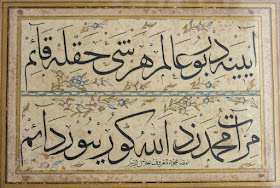 آيينه در بو عالم هر شئ حقله قائم
مرآت محمددن الله كورينور دائم